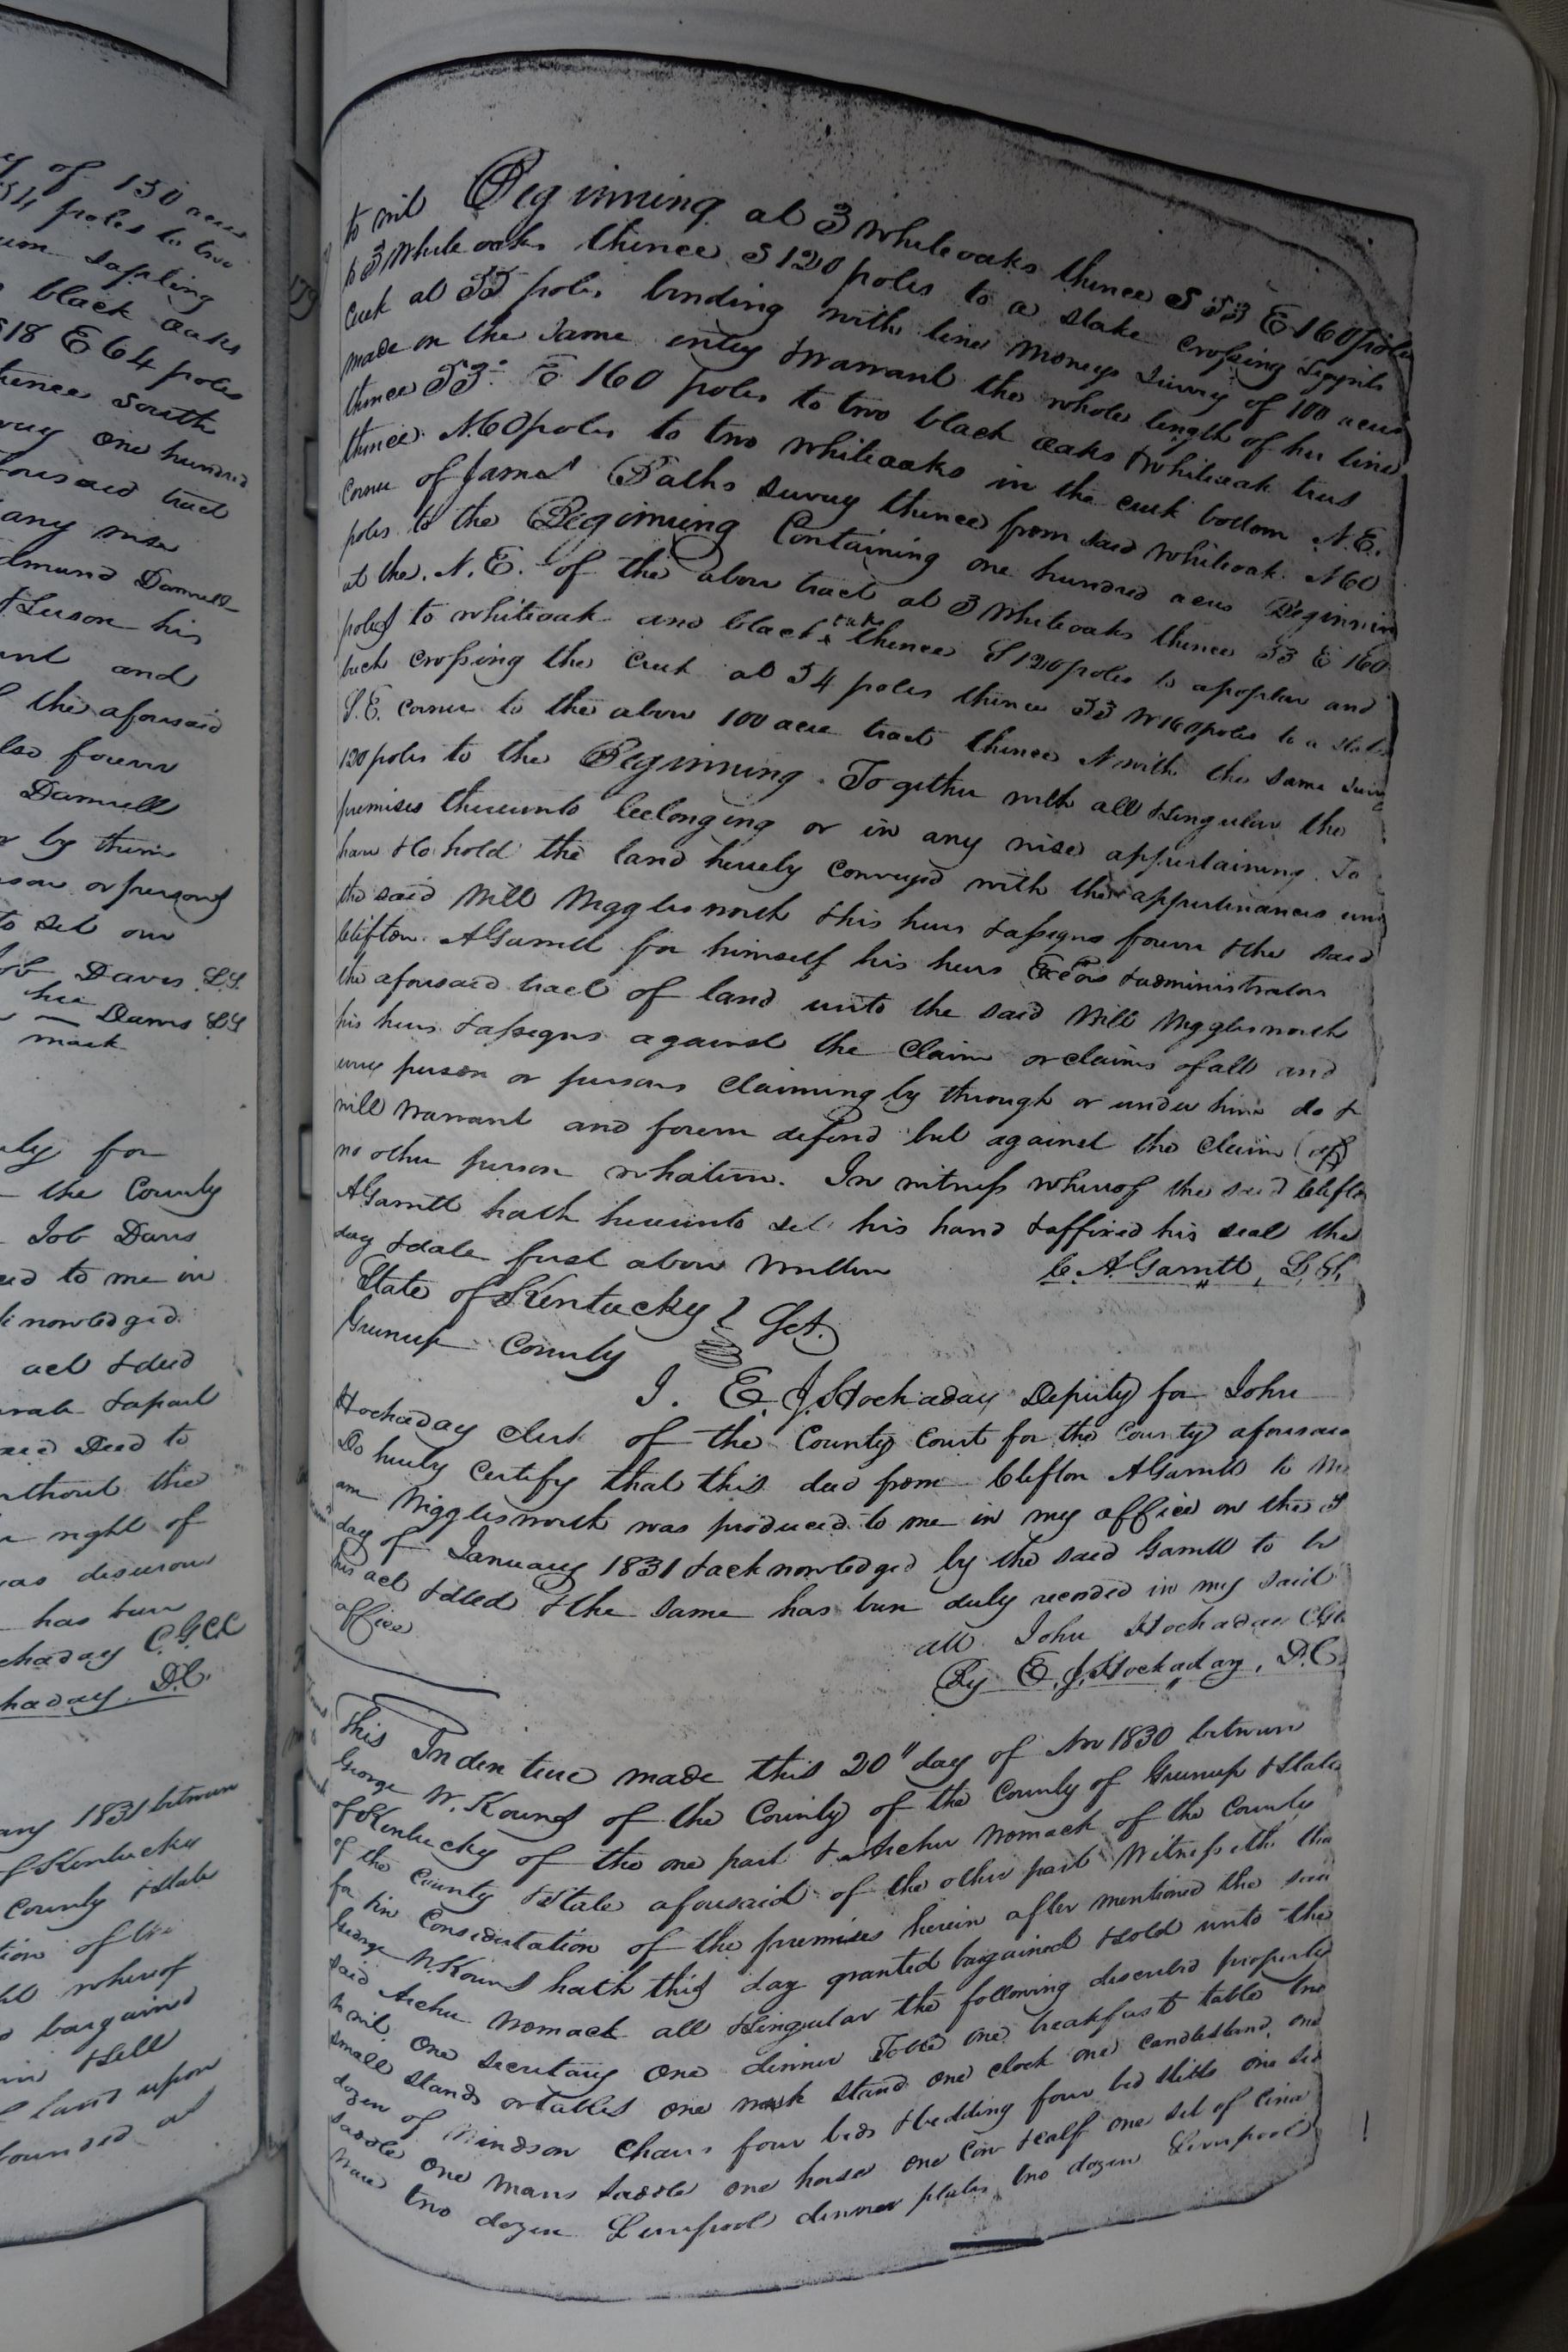 y of 150 acres
54 poles to two
sapling
black oaks
S18 E 64 poles
thence South
one hundred
aforesaid tract
any wise
Edmund Damrell
his
and
the aforesaid
also forever
Damrell
or by them
or persons
to set our
Job Davis L.S.
her
Davis LS
mark
for
the County
Job Davis
to me in
acknowledged
act & deed
& apart
Deed to
without the
right of
has been
Hockaday C.G.C.C
Hockaday D.C.
1831 between
of Kentucky
County & State
whereof
bargained
& sell
land upon
bounded
to wit Beginning at 3 whiteoaks thence S 53 E 160 poles
to 3 white oaks thence S 120 poles to a stake crossing
creek at 55 poles binding with line Moneys Survey of 100 acres
made on the same entry & warrant the whole length of her line
thence 53 E 160 poles to two black oaks & whiteoak trees
thence N.60 poles to two whiteoaks in the creek bottom N.E.
corner of James survey thence from said whiteoak N60
poles to the Beginning Containing one hundred acres Beginning
at the N.E. of the above tract at 3 whiteoaks thence 53 E 160
poles to whiteoak and black oaks thence S 120 poles to a poplar and
beech crossing the creek at 54 poles thence 53 W 160 poles to a stake
S.E. corner to the above 100 acre tract thence N with the same
120 poles to the Beginning. Together with all & singular the
premises thereunto belonging or in any wise appertaining. To
have & to hold the land hereby conveyed with the appurtinances unto
the said Will Wigglesworth & his heirs & assigns forever & the said
Clifton A Garrett for himself his heirs Exōrs & administrators
the aforesaid tract of land unto the said Will Wigglesworth
his heirs & assigns against the claim or claims of all and
every person or persons claiming by through or under him do &
will warrant and forever defend but against the claim of
no other person whatever. In witness whereof the said Clifton
A Garrett hath hereunto set his hand & affixed his seal the
day & date first above written C. A Garrett, L,S,
State of Kentucky } Sct.
Greenup County
I. E. J. Hockaday Deputy for John
Hockaday clerk of the County Court for the County aforesaid
Do hereby certify that this deed from Clifton A Garrett to
am Wigglesworth was produced to me in my office on the
day of January 1831 & acknowledged by the said Garrett to be
his act & deed & the same has been duly recorded in my said
office
att John Hockaday
By E. J. Hockaday, D.C.
This Indenture made this 20" day of Nov 1830 between
George W. Kouns of the County of the County of Greenup & State
of Kentucky of the one part & Archer Womack of the County
of the County & State aforesaid of the other part Witnesseth that
for & in Consideration of the premises herein after mentioned the said
George W. Kouns hath this day granted bargained & sold unto the
said Archer Womack all & singular the following described property
to wit. One secretary one dinner Table one breakfast table two
small stands or tables one wash stand one clock one candlestand, one
dozen of Windson chairs four beds & bedding four bed steads one side
saddle one mans saddle one horse one cow & calf one set of
ware two dozen Liverpool dinner plates two dozen Liverpool